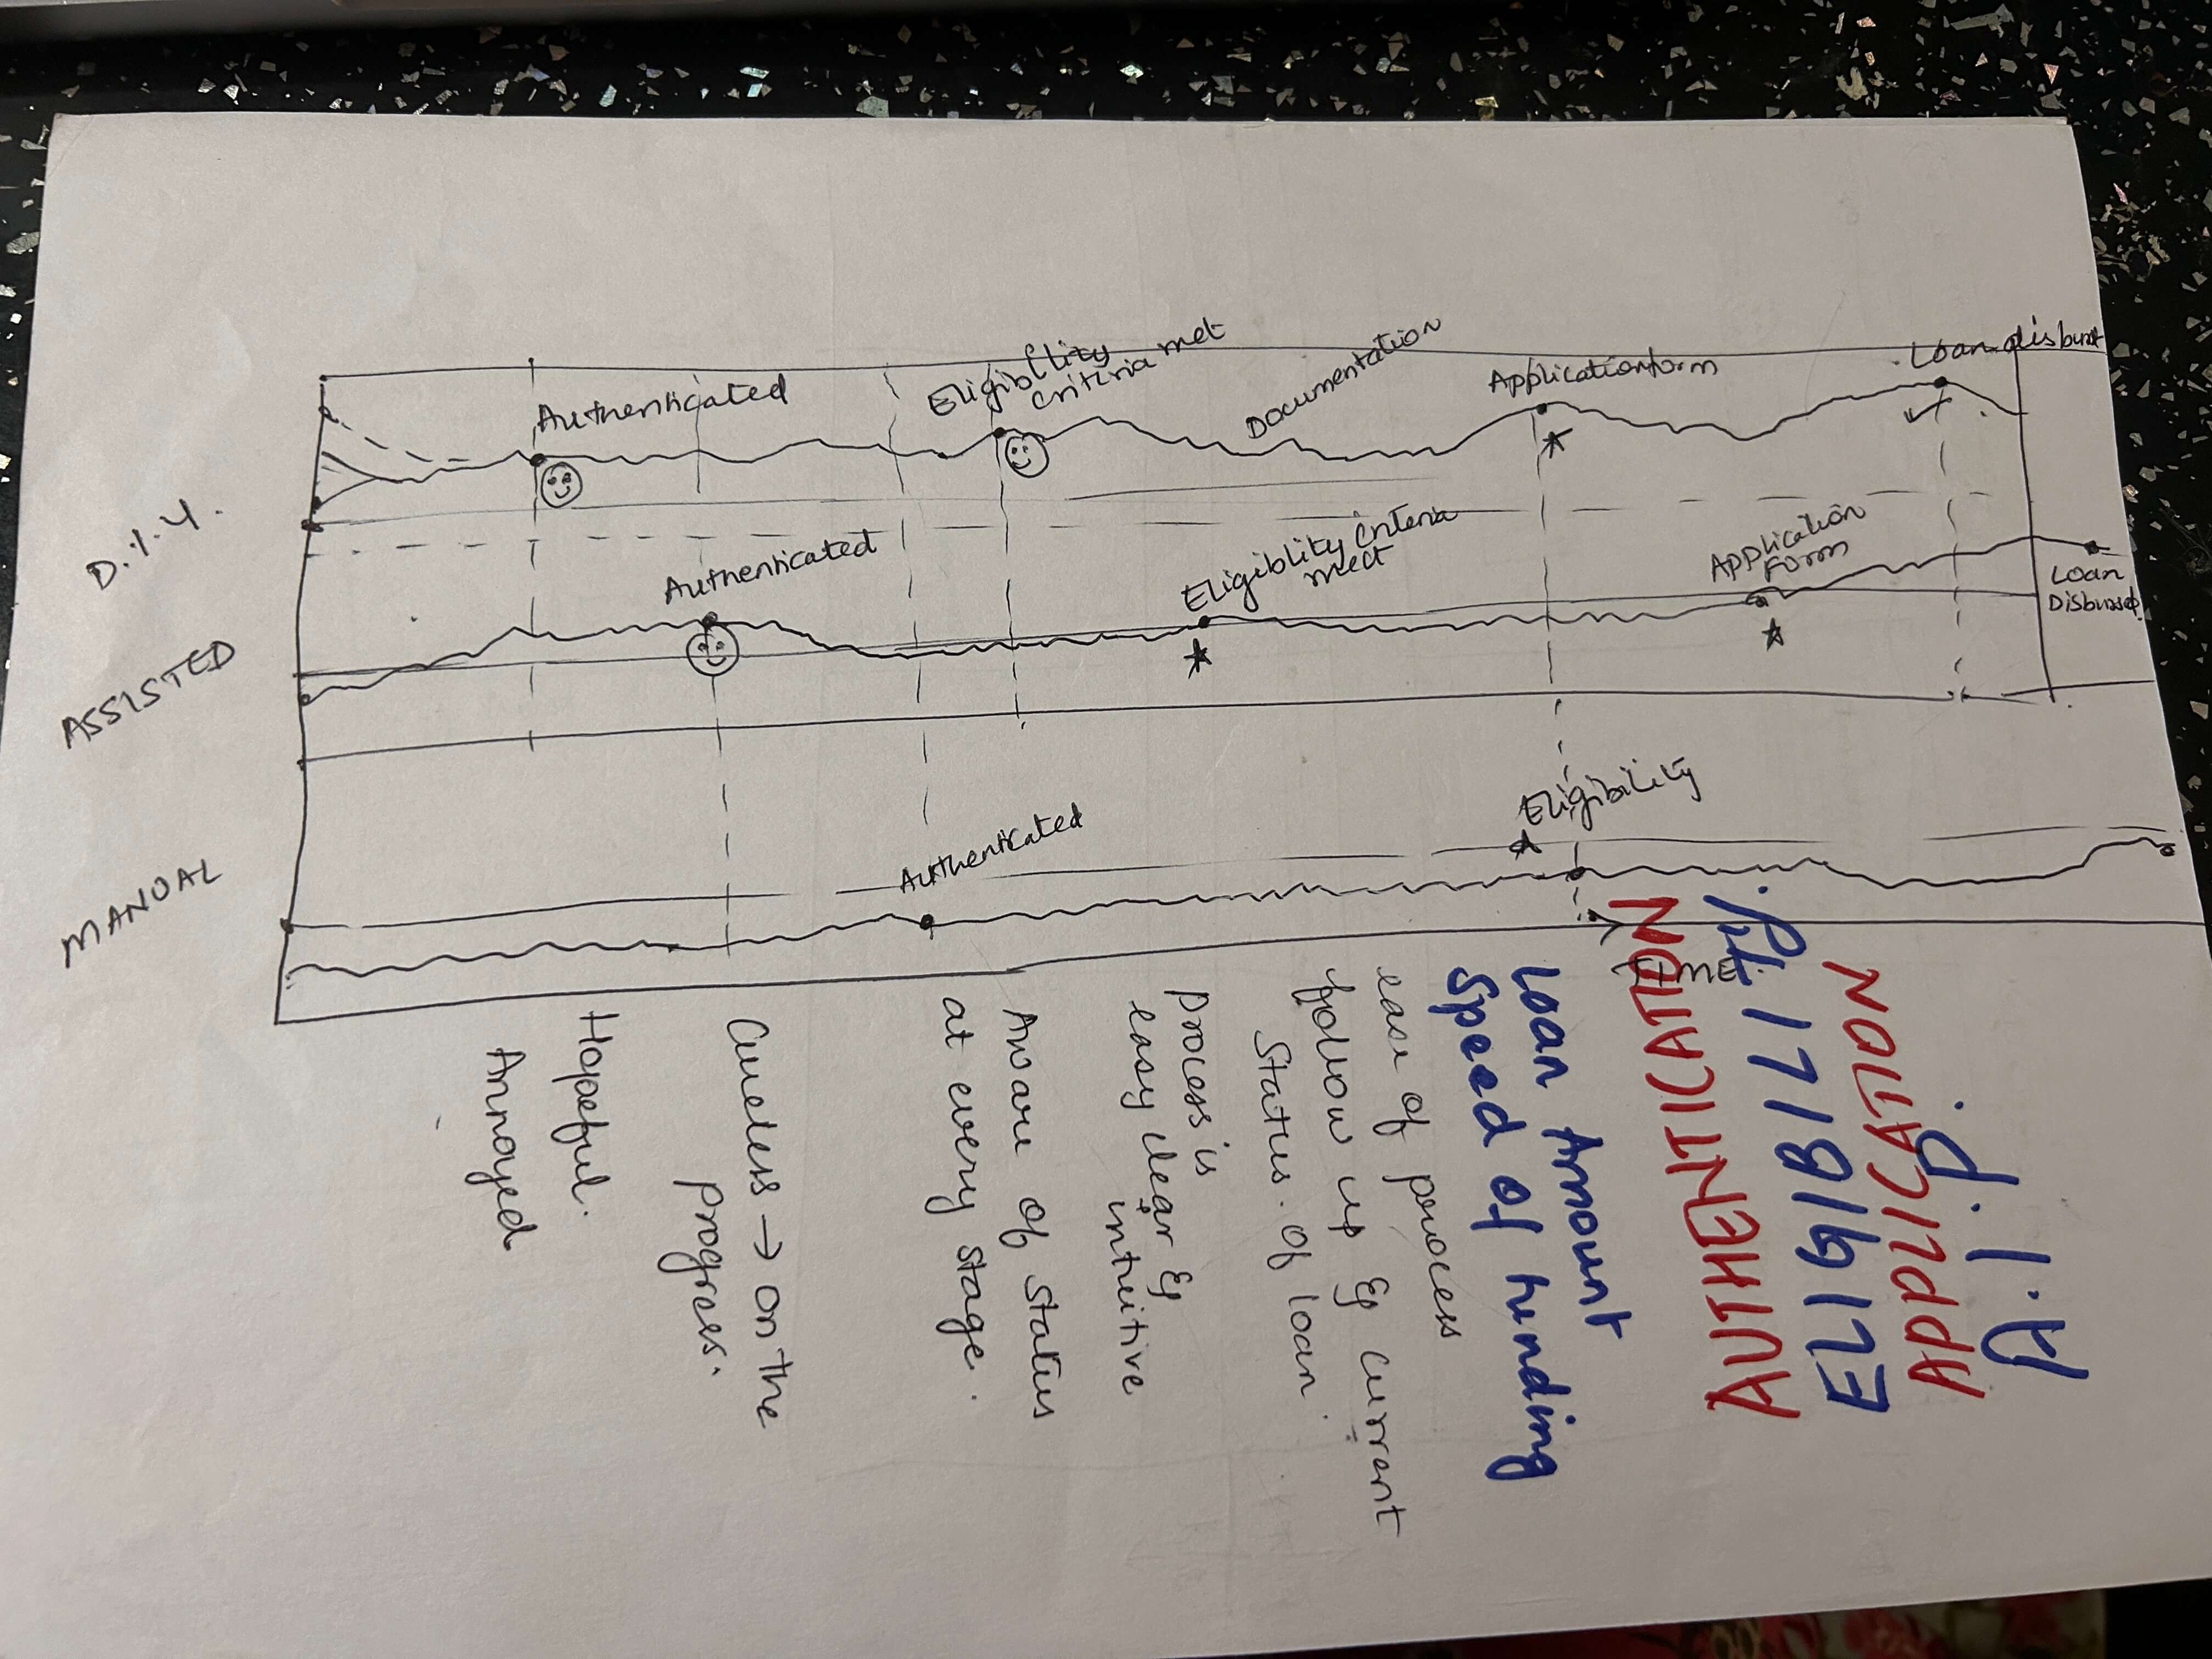 Authenticated
Eligibility
criteria met
Documentation
Application form
Loan disburst
D.I.Y.
Authenticated
Eligiblity Criteria
meet
Application
Form
Loan
Disbursed
ASSISTED
Authenticated
Eligibility
MANUAL
TIME.
A.I.P.
APPLICATION
ELIGIBILITY.
AUTHENTICATION
Loan Amount
Speed of funding
ease of process
follow up & current
Status. of loan.
Process is
easy clear &
intuitive
Aware of Status
at every stage.
Clueless → on the
progress.
Hopeful.
Annoyed